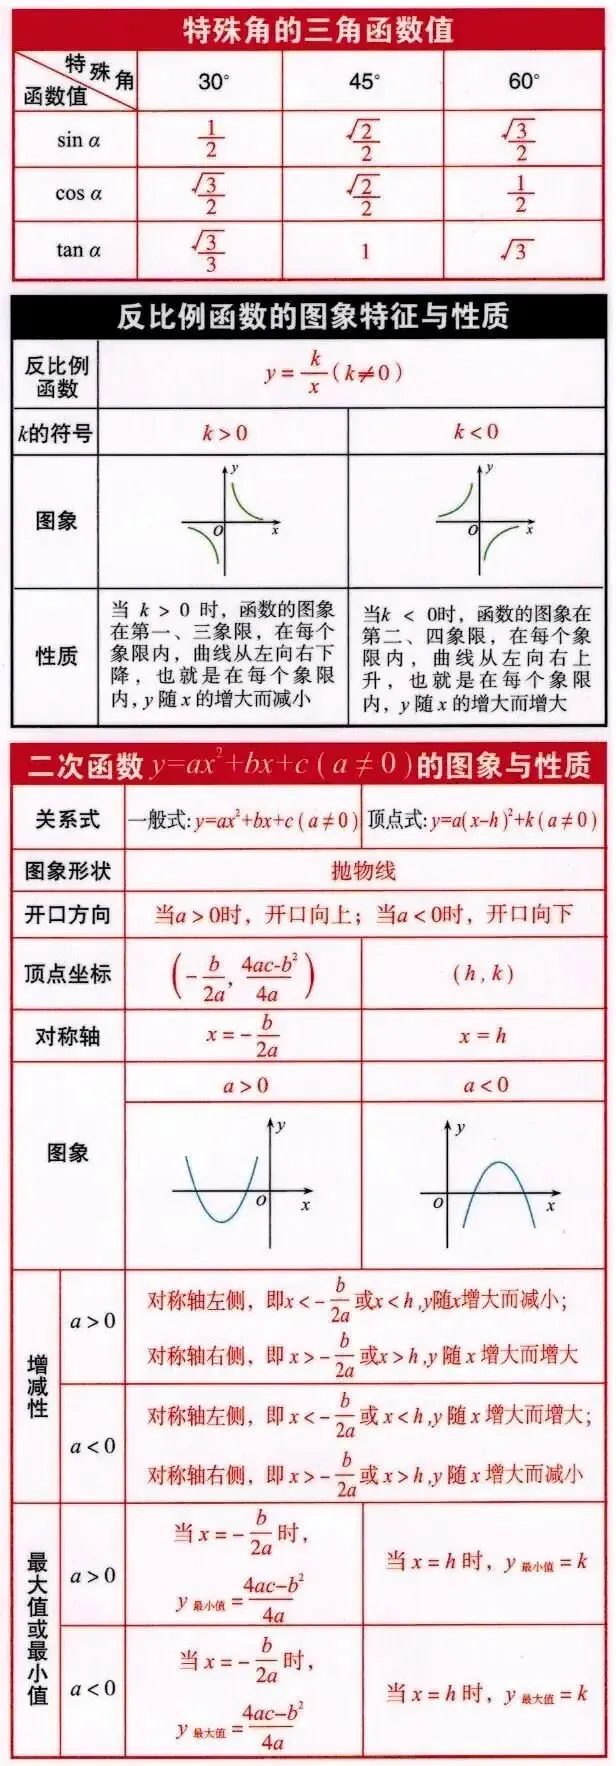 特殊角的三角函数值
特殊角
函数值
30° 45° 60°
sin α 1/2 √2/2 √3/2
cos α √3/2 √2/2 1/2
tan α √3/3 1 √3
反比例函数的图象特征与性质
反比例
函数
y = k/x ( k≠0 )
k的符号 k > 0 k < 0
图象
y
O x
y
O x
性质
当 k > 0 时，函数的图象
在第一、三象限，在每个
象限内，曲线从左向右下
降，也就是在每个象限
内，y 随 x 的增大而减小
当k < 0时，函数的图象在
第二、四象限，在每个象
限内，曲线从左向右上
升，也就是在每个象限
内，y 随 x 的增大而增大
二次函数 y=ax²+bx+c ( a ≠ 0 )的图象与性质
关系式 一般式: y=ax²+bx+c ( a≠0 ) 顶点式: y=a(x-h)²+k ( a≠0 )
图象形状 抛物线
开口方向 当a > 0时，开口向上；当a < 0时，开口向下
顶点坐标 (-b/2a, 4ac-b²/4a) ( h , k )
对称轴 x = -b/2a x = h
图象
a > 0 a < 0
y
O x
y
O x
增减性
a > 0
对称轴左侧，即x < -b/2a 或x < h ,y随x增大而减小；
对称轴右侧，即 x > -b/2a 或x > h ,y 随 x 增大而增大
a < 0
对称轴左侧，即 x < -b/2a 或 x < h ,y 随 x 增大而增大；
对称轴右侧，即 x > -b/2a 或 x > h ,y 随 x 增大而减小
最大值或最小值
a > 0
当 x = -b/2a 时，
y 最小值 = 4ac-b²/4a
当 x = h 时，y 最小值 = k
a < 0
当 x = -b/2a 时，
y 最大值 = 4ac-b²/4a
当 x = h 时，y 最大值 = k